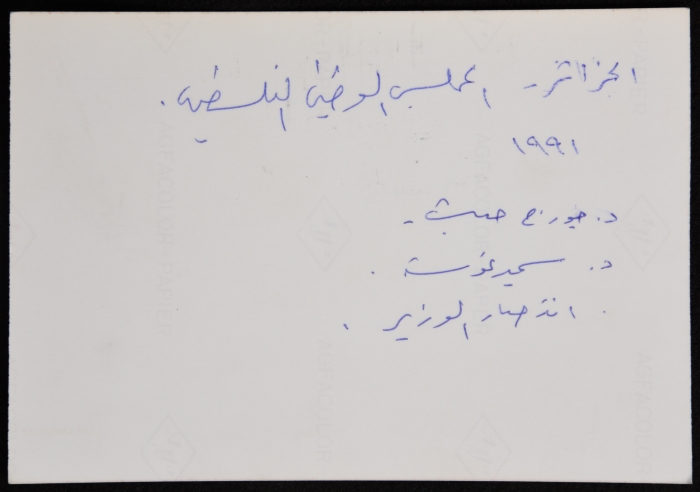 الجزائر - المجلس الوطني الفلسطيني.
١٩٩١
د. جورج حبش -
د. سمير غوشة.
انتصار الوزير.